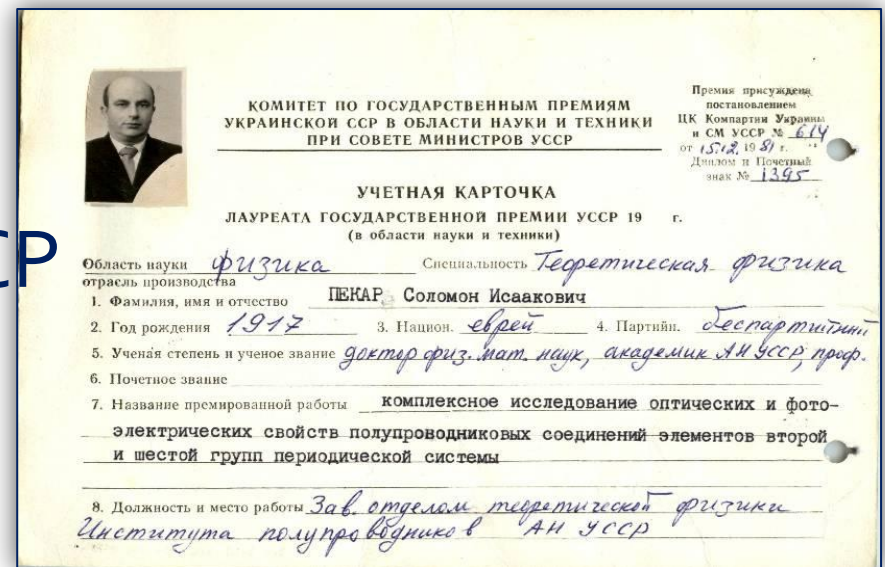 СР
КОМИТЕТ ПО ГОСУДАРСТВЕННЫМ ПРЕМИЯМ
УКРАИНСКОЙ ССР В ОБЛАСТИ НАУКИ И ТЕХНИКИ
ПРИ СОВЕТЕ МИНИСТРОВ УССР
Премия присуждена
постановлением
ЦК Компартии Украины
и СМ УССР № 614
от 15.12. 1981 г.
Диплом и Почетный
знак № 1395
УЧЕТНАЯ КАРТОЧКА
ЛАУРЕАТА ГОСУДАРСТВЕННОЙ ПРЕМИИ УССР 19 г.
(в области науки и техники)
Область науки физика Специальность Теоретическая физика
отрасль производства
1. Фамилия, имя и отчество ПЕКАР Соломон Исаакович
2. Год рождения 1917 3. Национ. еврей 4. Партийн. беспартийный
5. Ученая степень и ученое звание доктор физ. мат. наук, академик АН УССР, проф.
6. Почетное звание
7. Название премированной работы комплексное исследование оптических и фото-
электрических свойств полупроводниковых соединений элементов второй
и шестой групп периодической системы
8. Должность и место работы Зав. отделом теоретической физики
Института полупроводников АН УССР